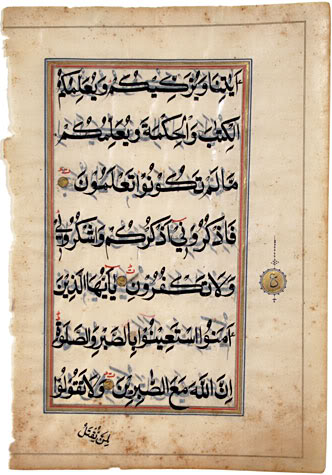 ءَايَٰتِنَا وَيُزَكِّيكُمْ وَيُعَلِّمُكُمُ
الْكِتَٰبَ وَالْحِكْمَةَ وَيُعَلِّمُكُمْ
مَّا لَمْ تَكُونُوا تَعْلَمُونَ
فَاذْكُرُونِي أَذْكُرْكُمْ وَاشْكُرُوا لِي
وَلَا تَكْفُرُونِ يَٰٓأَيُّهَا الَّذِينَ
ءَامَنُوا اسْتَعِينُوا بِالصَّبْرِ وَالصَّلَوٰةِ
إِنَّ اللَّهَ مَعَ الصَّٰبِرِينَ وَلَا تَقُولُوا
لِمَن يُقْتَلُ